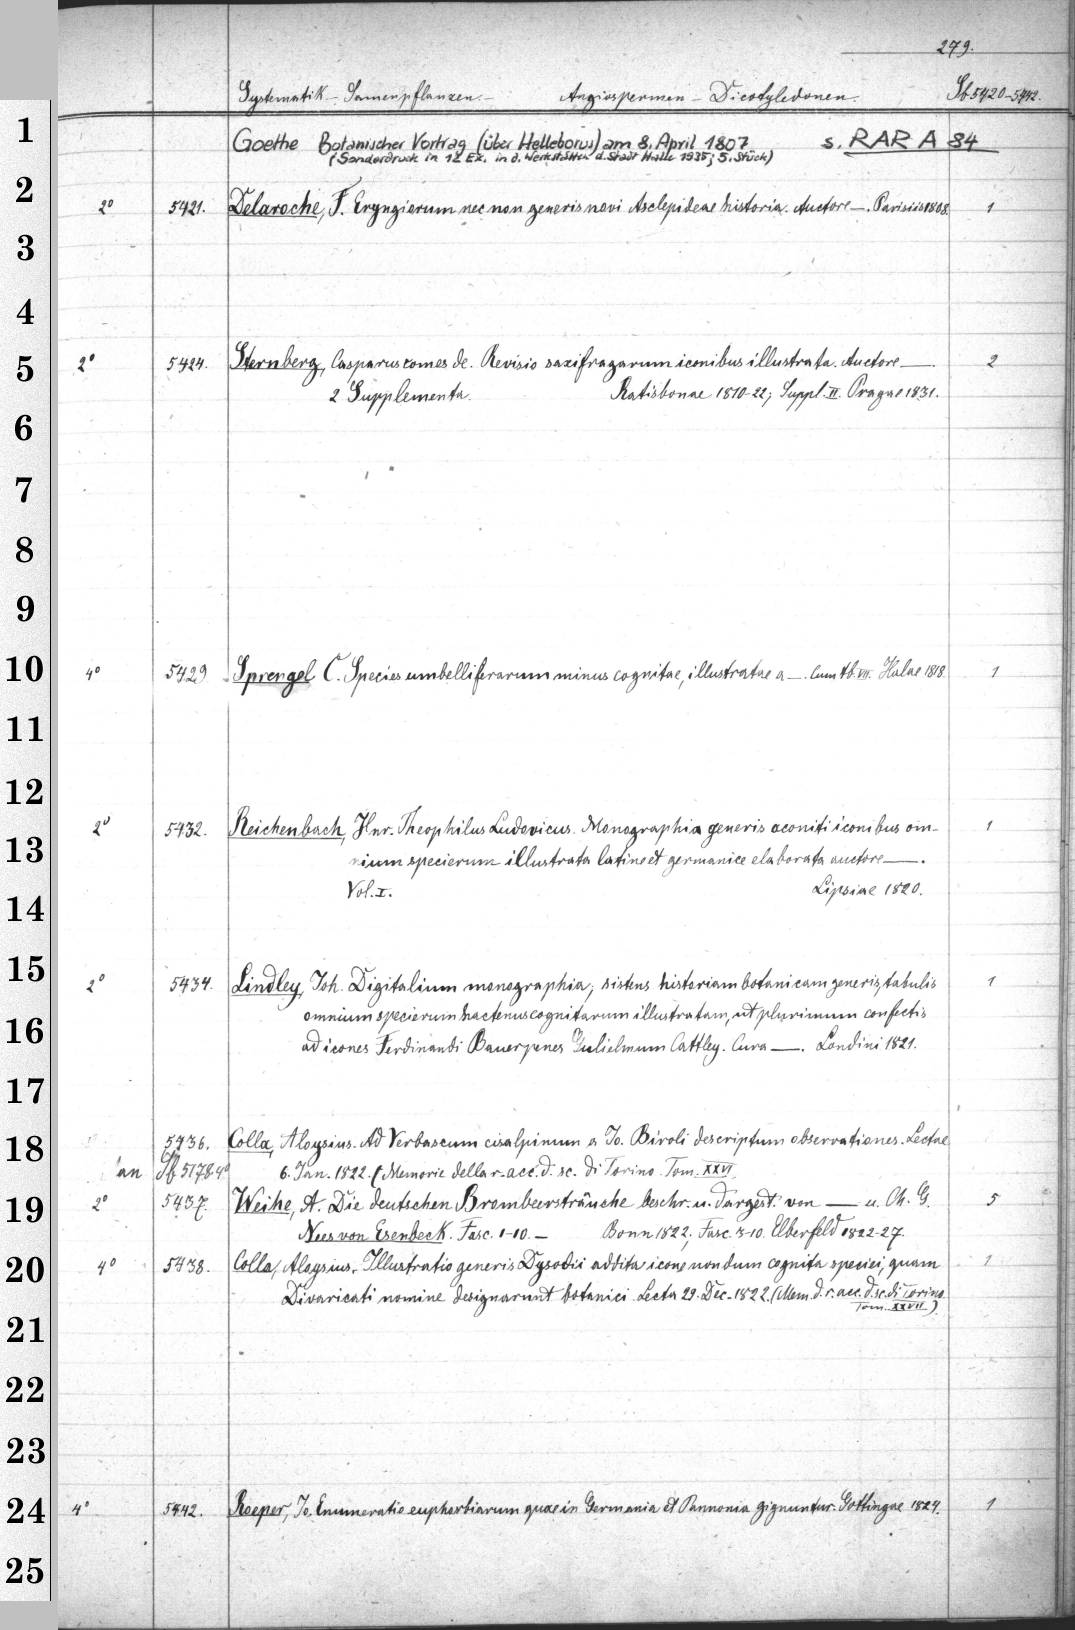 279.
Systematik – Samenpflanzen. – Angiospermen – Dicotyledonen. Sb 5420–5442.
1
Goethe Botanischer Vortrag (über Helleborus) am 8. April 1807 s. RAR A 84
(Sonderdruck in 12 Ex. in d. Werkstätten d. Stadt Halle 1935; 5. Stück)
2
2° 5421. Delaroche, F. Eryngierum nec non generis novi Asclepideae historia. Auctore —. Parisiis 1808. 1
3
4
5
2° 5424. Sternberg, Casparus comes de. Revisio saxifragarum iconibus illustrata. Auctore —. 2
2 Supplementa. Ratisbonae 1810-22; Suppl. II. Pragae 1831.
6
7
8
9
10
4° 5429 Sprengel C. Species umbelliferarum minus cognitae, illustratae a —. Cum tb. VII. Halae 1818. 1
11
12
2° 5432. Reichenbach, Hnr. Theophilus Ludovicus. Monographia generis aconiti iconibus om- 1
13
nium specierum illustrata latine et germanice elaborata auctore —.
Vol. I. Lipsiae 1820.
14
15
2° 5434. Lindley, Joh. Digitalium monographia; sistens historiam botanicam generis, tabulis 1
omnium specierum hactenus cognitarum illustratam, ut plurimum confectis
16
ad icones Ferdinandi Bauer penes Gulielmum Cattley. Cura —. Londini 1821.
17
18
5436. Colla, Aloysius. Ad Verbascum cisalpinum a Jo. Biroli descriptum observationes. Lectae
an Sb 5178 4° 6. Jan. 1822. (Memorie della r. acc. d. sc. di Torino. Tom. XXVI.
19
2° 5437. Weihe, A. Die deutschen Brombeersträuche beschr. u. dargest. von — u. Ch. G. 5
Nees von Esenbeck. Fasc. 1-10. – Bonn 1822; Fasc. 3-10. Elberfeld 1822-27.
20
4° 5438. Colla, Aloysius. Illustratio generis Dysodii addita icone nondum cognita speciei, quam 1
Divaricati nomine designarunt botanici. Lecta 29. Dec. 1822. (Mem. d. r. acc. d. sc. di Torino.
Tom. XXVII.)
21
22
23
24
4° 5442. Roeper, Jo. Enumeratio euphorbiarum quae in Germania et Pannonia gignuntur. Gottingae 1824. 1
25